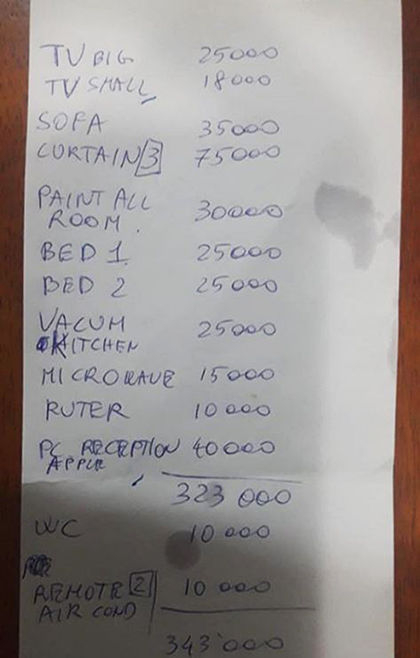 TV BIG 25000
TV SMALL 18000
SOFA 35000
CURTAIN 3 75000
PAINT ALL
ROOM. 30000
BED 1 25000
BED 2 25000
VACUM 25000
KITCHEN
MICROWAVE 15000
RUTER 10000
PC RECEPTION 40000
APPLE
323 000
WC 10 000
REMOTE 2 10 000
AIR COND
343 000